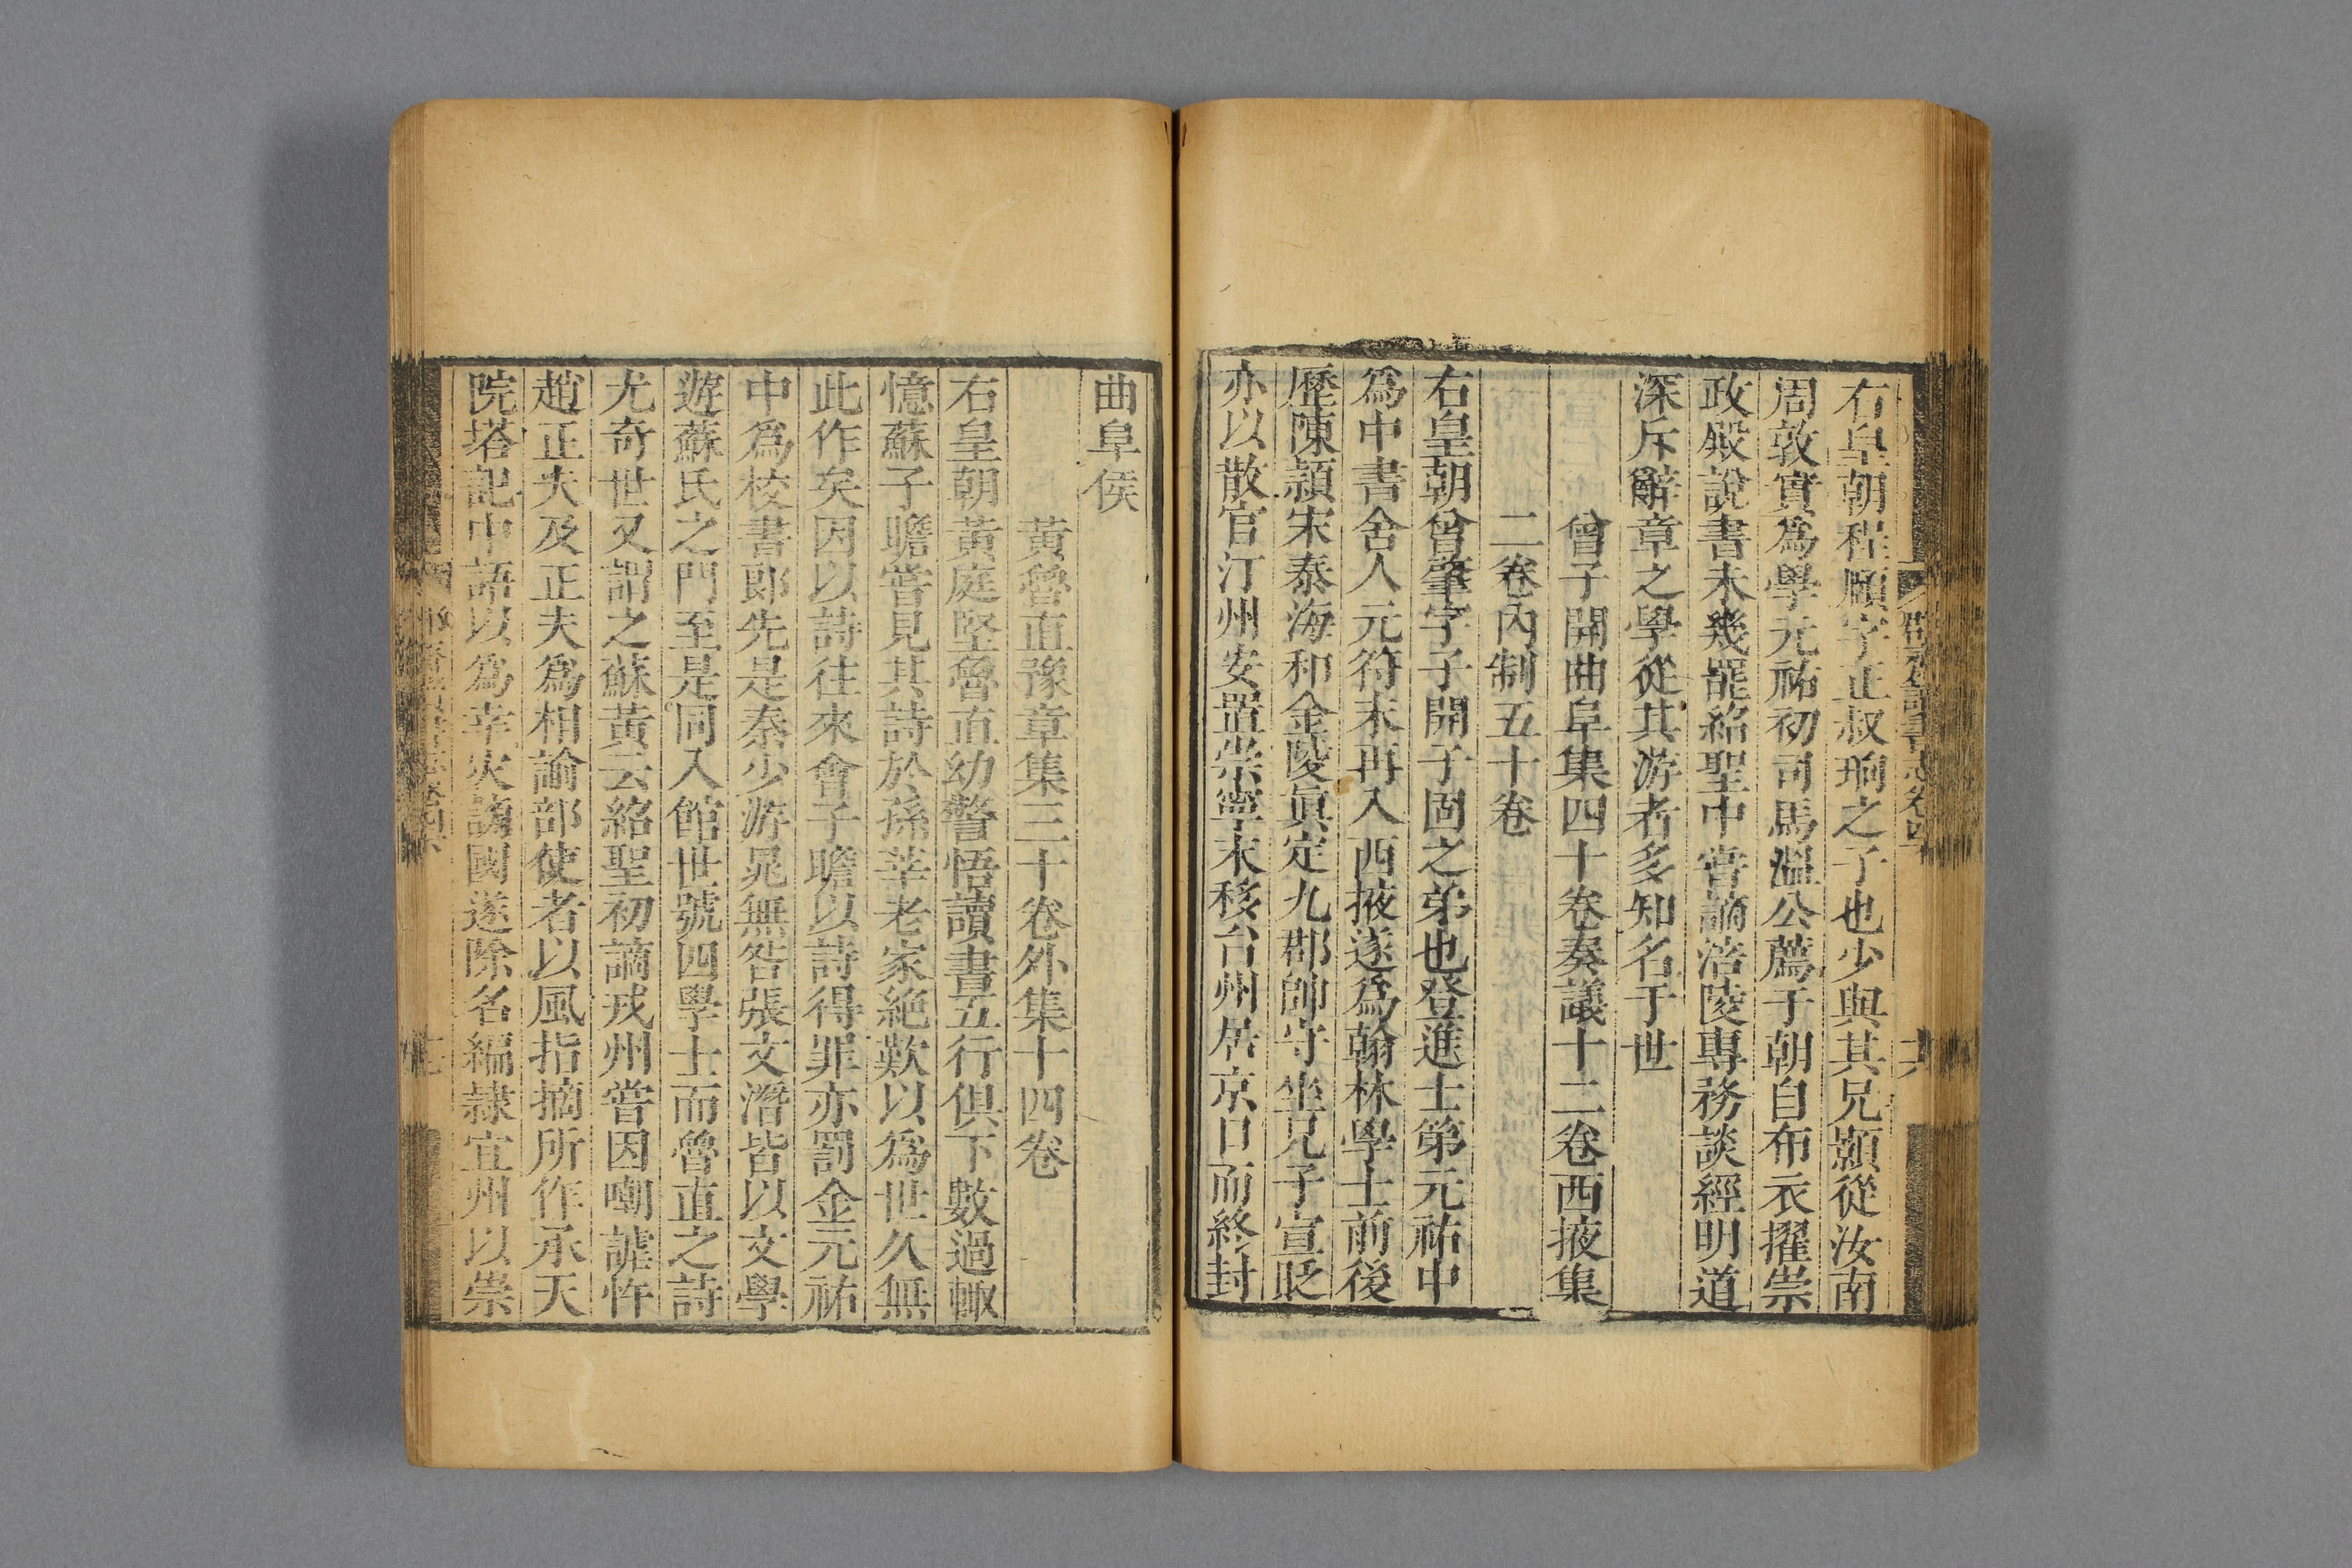 右皇朝程頤字正叔珦之子也少與其兄顥從汝南
周敦實爲學元祐初司馬溫公薦于朝自布衣擢崇
政殿說書未幾罷紹聖中嘗謫涪陵專務談經明道
深斥辭章之學從其游者多知名于世
曾子開曲阜集四十卷奏議十二卷西掖集
二卷內制五十卷
右皇朝曾肇字子開子固之弟也登進士第元祐中
爲中書舍人元符末再入西掖遂爲翰林學士前後
歷陳潁宋泰海和金陵眞定九郡帥守坐兄子宣貶
亦以散官汀州安置崇寧末移台州居京口而終封
曲阜侯
黃魯直豫章集三十卷外集十四卷
右皇朝黃庭堅魯直幼警悟讀書五行俱下數過輙
憶蘇子瞻嘗見其詩於孫莘老家絶歎以爲世久無
此作矣因以詩往來會子瞻以詩得罪亦罰金元祐
中爲校書郎先是秦少游晁無咎張文潛皆以文學
遊蘇氏之門至是同入館世號四學士而魯直之詩
尤奇世又謂之蘇黃云紹聖初謫戎州嘗因嘲謔忤
趙正夫及正夫爲相諭部使者以風指摘所作承天
院塔記中語以爲幸災謗國遂除名編隷宜州以崇